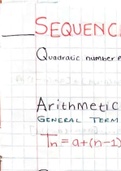 SEQUENC
Quadratic number p
Arithmetic
GENERAL TERM
Tn = a+(n-1)